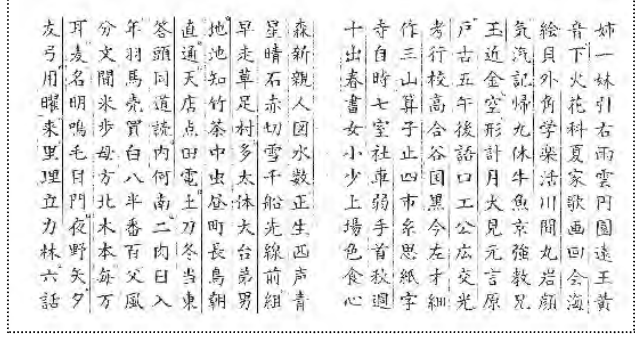 姉一妹引右雨雲円園遠王黄
音下火花科夏家歌画回会海
絵貝外角学楽活川間丸岩顔
気汽記帰九休牛魚京強教兄
玉近金空形計月犬見元言原
戸古五午後語口工公広交光
考行校高合谷国黒今左才細
作三山算子止四市糸思紙字
寺自時七室社車弱手首秋週
十出春書女小少上場色食心
森新親人図水数正生西声青
星晴石赤切雪千船先線前組
早走草足村多太体大台弟男
地池知竹茶中虫昼町長鳥朝
直通天店点田電土刀冬当東
答頭同道読内何南二肉日入
年羽馬売買白八半番百父風
分文聞米歩母方北木本毎万
耳麦名明鳴毛目門夜野矢夕
友弓用曜来里理立力林六話